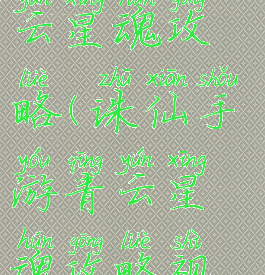 yún xīng hún gōng
云星魂攻
lüè zhū xiān shǒu
略(诛仙手
yóu qīng yún xīng
游青云星
hún gōng lüè shì
魂攻略视